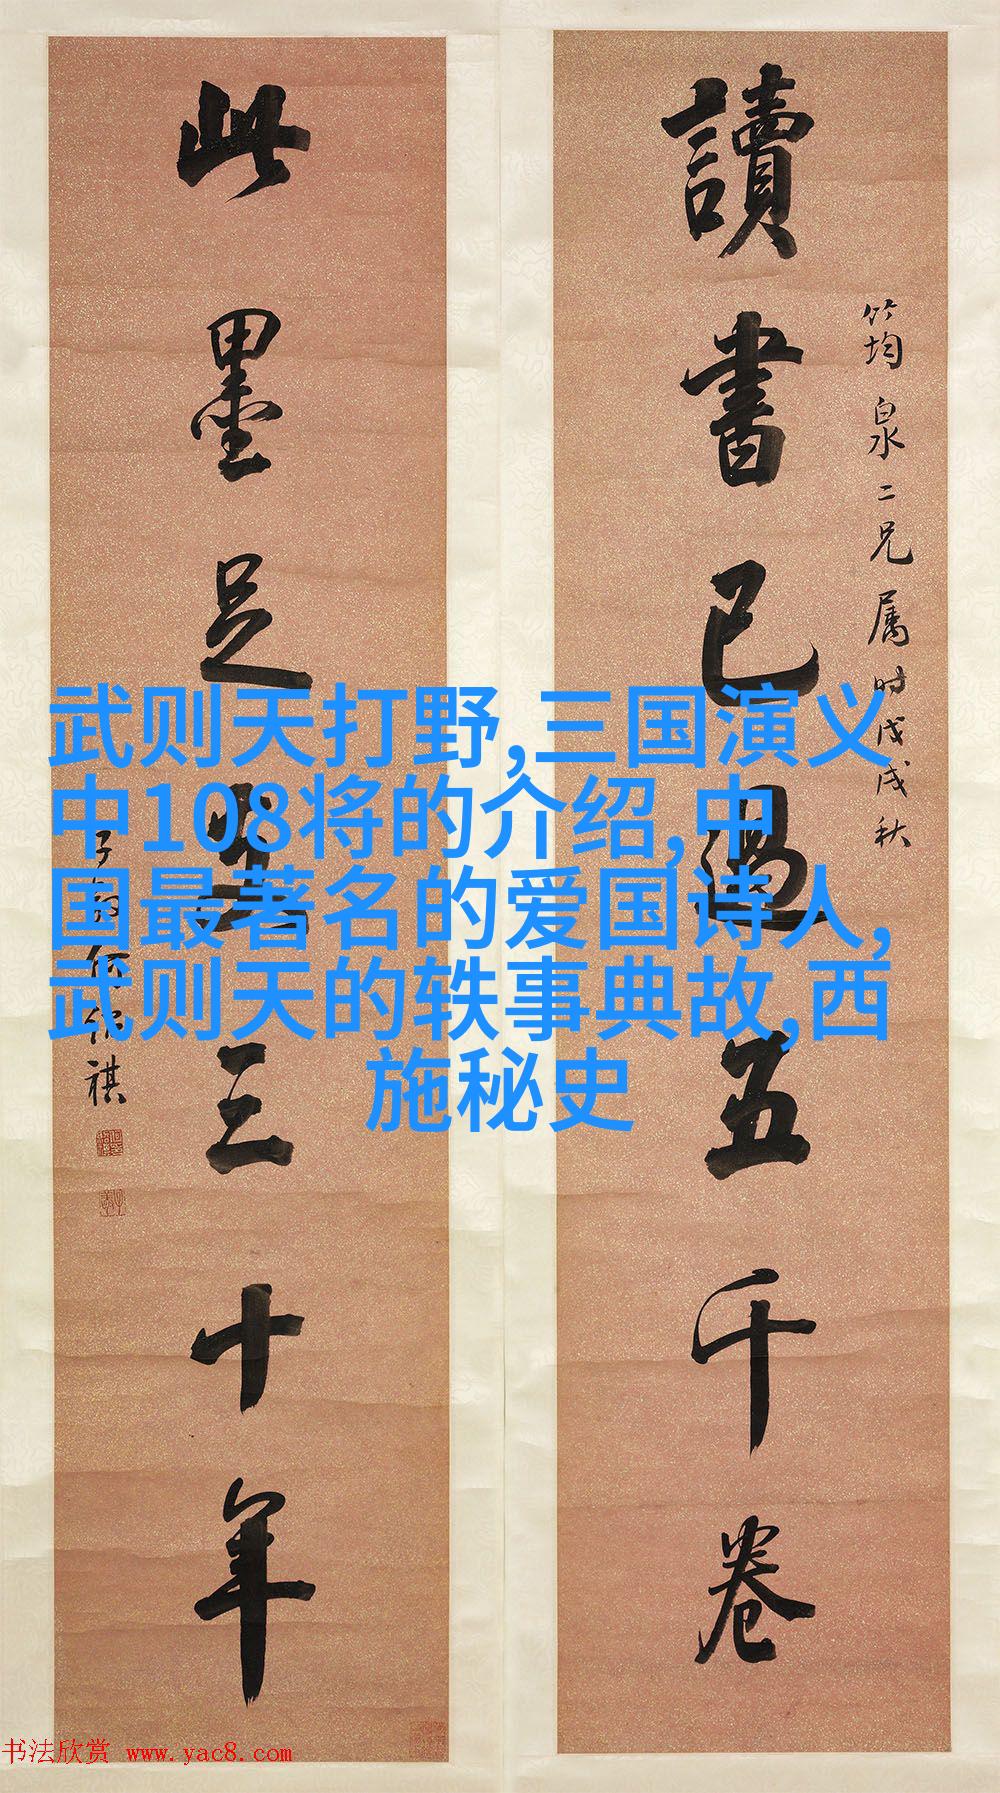 讀書已過五千卷
筠泉二兄属时戊戌秋
此墨足三十年
子何祺
武则天打野,三国演义
中108将的介绍,中
国最著名的爱国诗人,
武则天的轶事典故,西
施秘史
书法欣赏 www.yac8.com